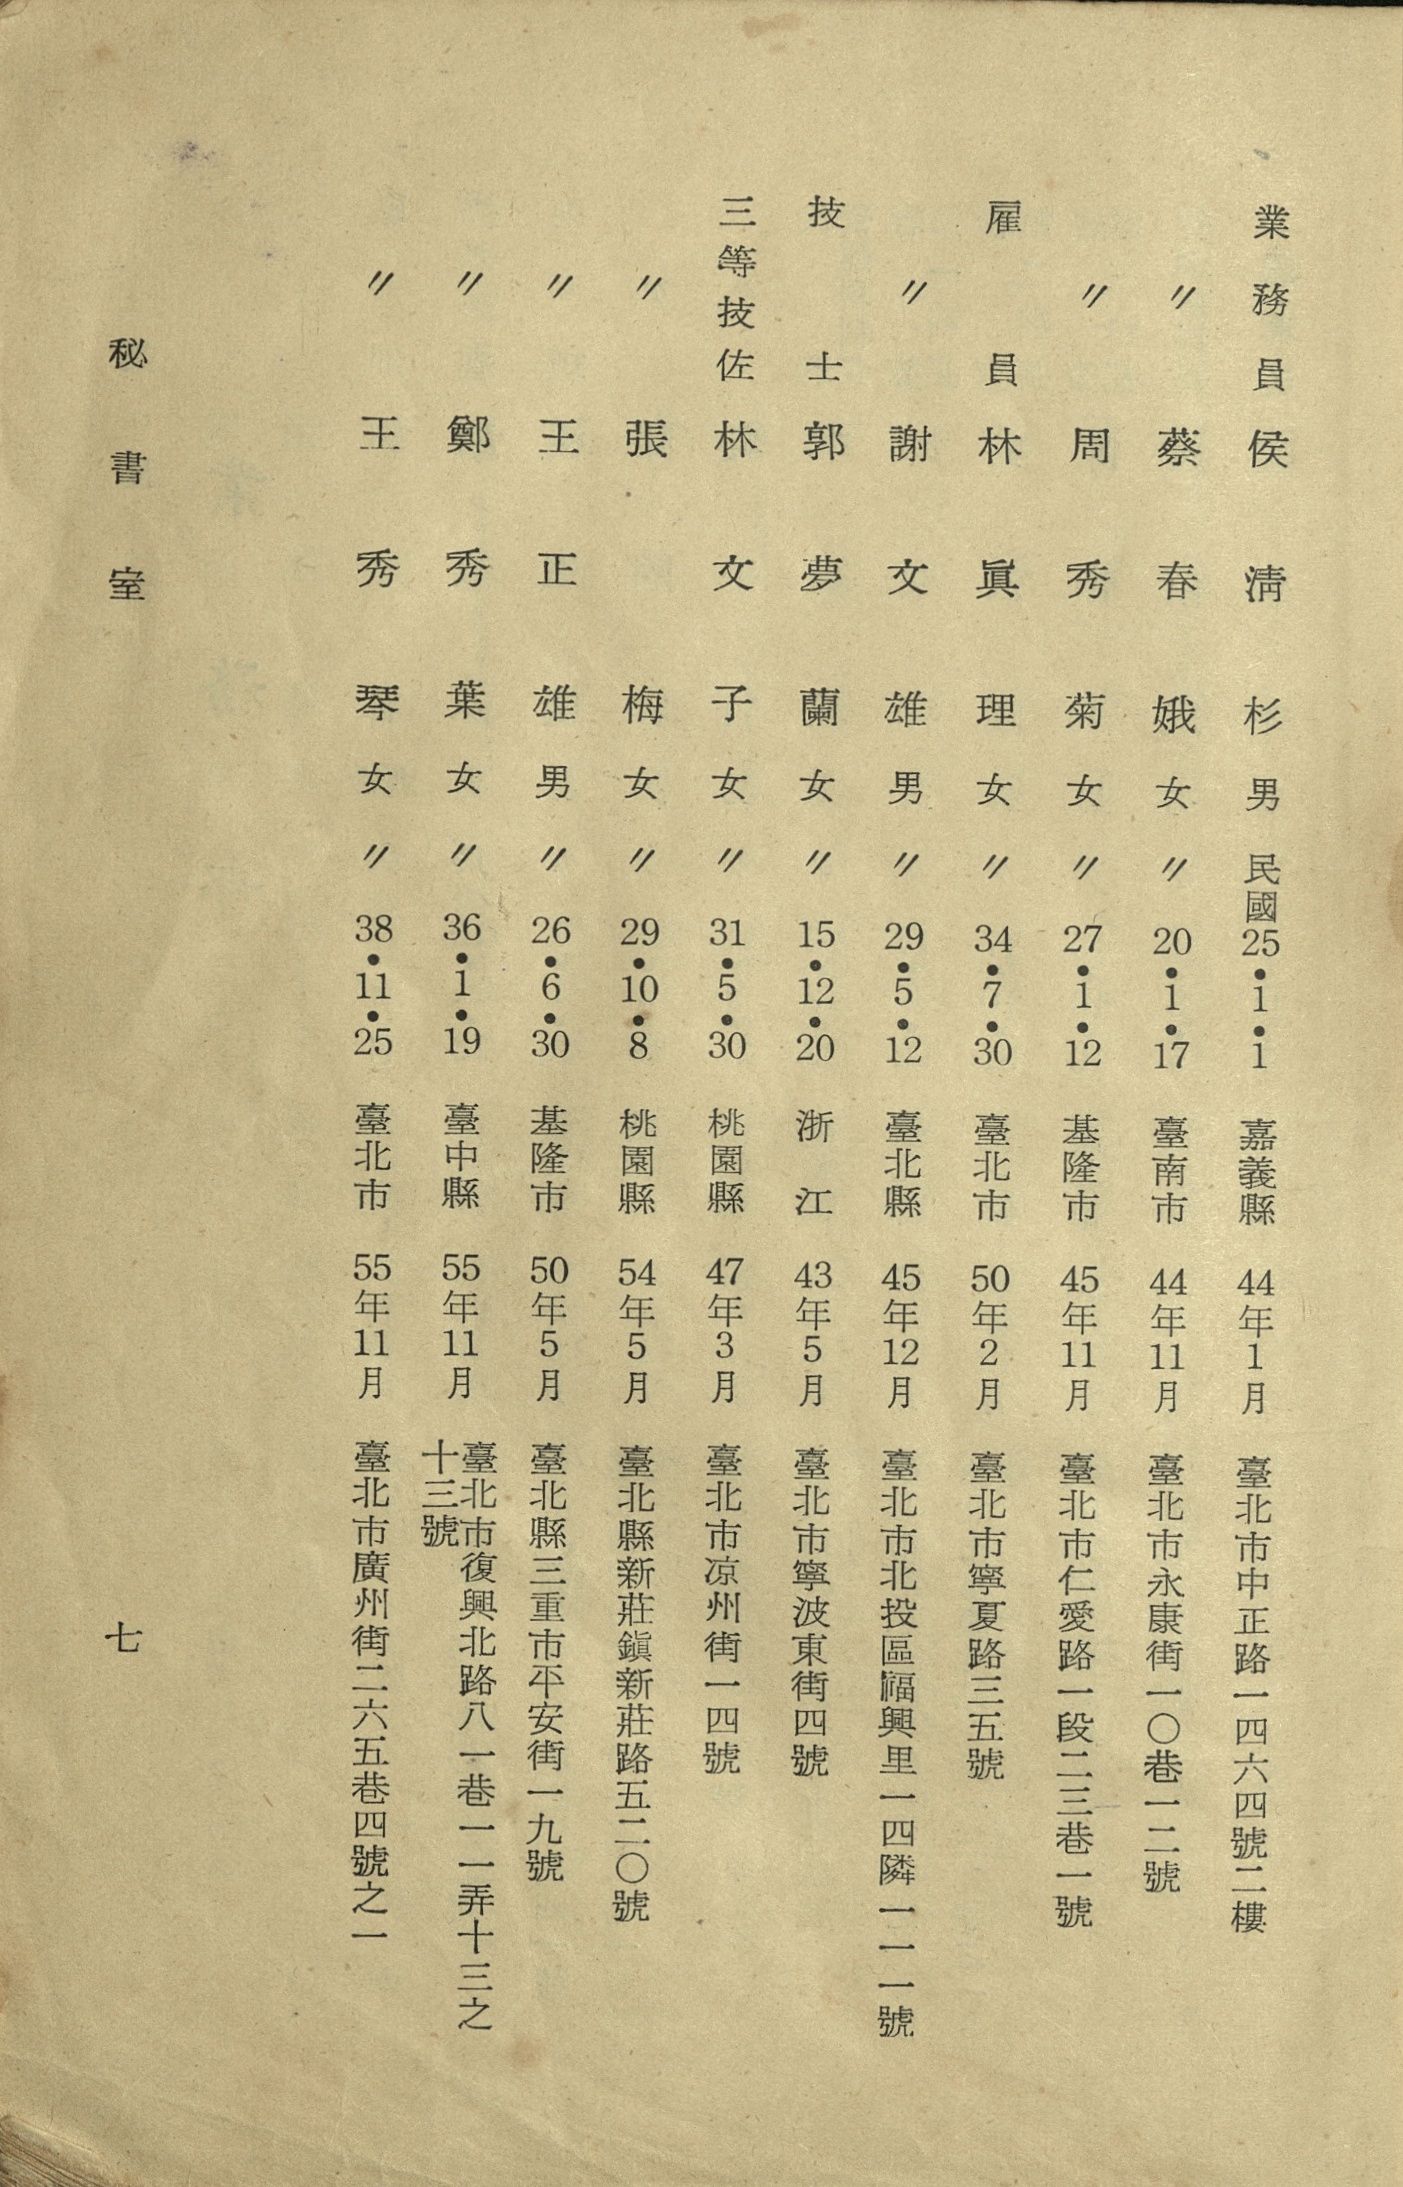 業務員 侯清杉 男 民國25•1•1 嘉義縣 44年1月 臺北市中正路一四六四號二樓
〃 蔡春娥 女 〃 20•1•17 臺南市 44年11月 臺北市永康街一〇巷一二號
〃 周秀菊 女 〃 27•1•12 基隆市 45年11月 臺北市仁愛路一段二三巷一號
雇員 林眞理 女 〃 34•7•30 臺北市 50年2月 臺北市寧夏路三五號
〃 謝文雄 男 〃 29•5•12 臺北縣 45年12月 臺北市北投區福興里一四隣一一一號
技士 郭夢蘭 女 〃 15•12•20 浙江 43年5月 臺北市寧波東街四號
三等技佐 林文子 女 〃 31•5•30 桃園縣 47年3月 臺北市凉州街一四號
〃 張梅 女 〃 29•10•8 桃園縣 54年5月 臺北縣新莊鎭新莊路五二〇號
〃 王正雄 男 〃 26•6•30 基隆市 50年5月 臺北縣三重市平安街一九號
〃 鄭秀葉 女 〃 36•1•19 臺中縣 55年11月 臺北市復興北路八一巷一一弄十三之
十三號
〃 王秀琴 女 〃 38•11•25 臺北市 55年11月 臺北市廣州街二六五巷四號之一
秘書室 七